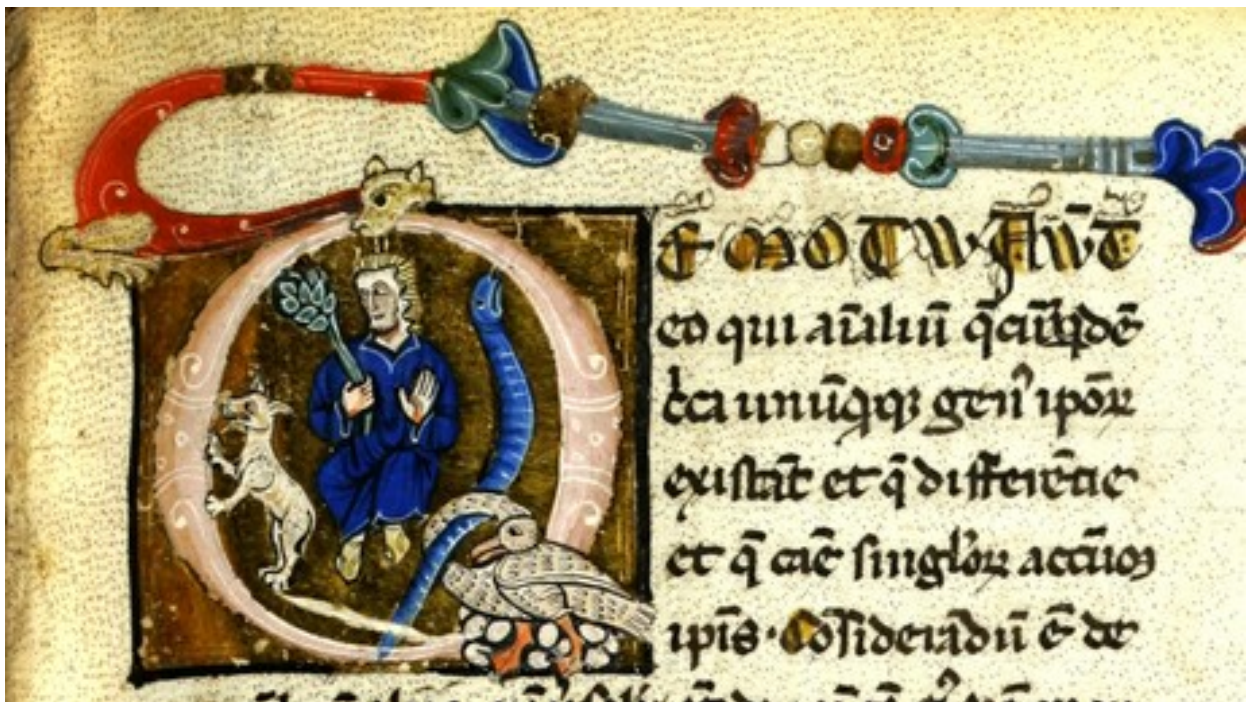 DE MOTU AŪT̄
eo qui aīaliū q̄cūq̄ qdē
c̄ca unūqqꝫ gen᷒ ipōꝝ
existāt et q̄ differētie
et q̄ cāe singloꝝ
ipīs · Cōsiderādū ē de